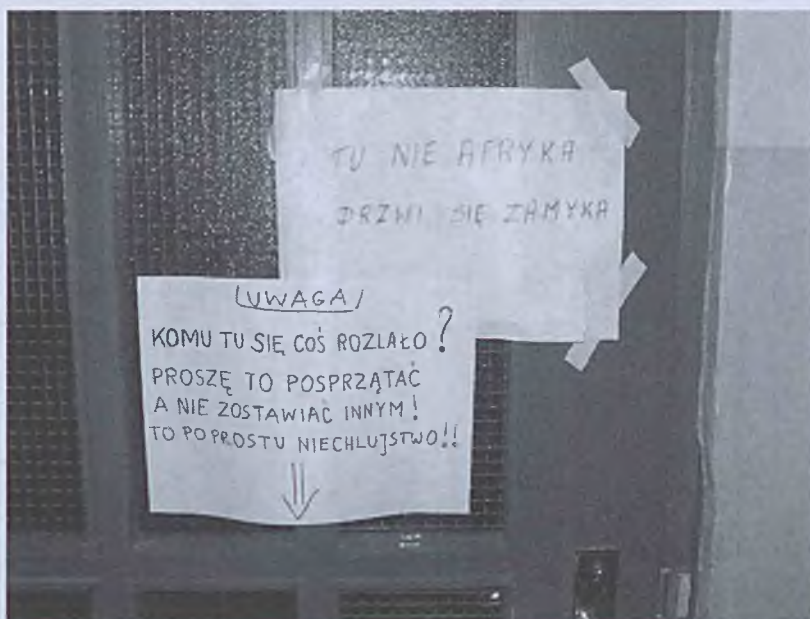 TU NIE AFRYKA
DRZWI SIĘ ZAMYKA
UWAGA!
KOMU TU SIĘ COŚ ROZLAŁO?
PROSZĘ TO POSPRZĄTAĆ
A NIE ZOSTAWIAĆ INNYM!
TO POPROSTU NIECHLUJSTWO!!